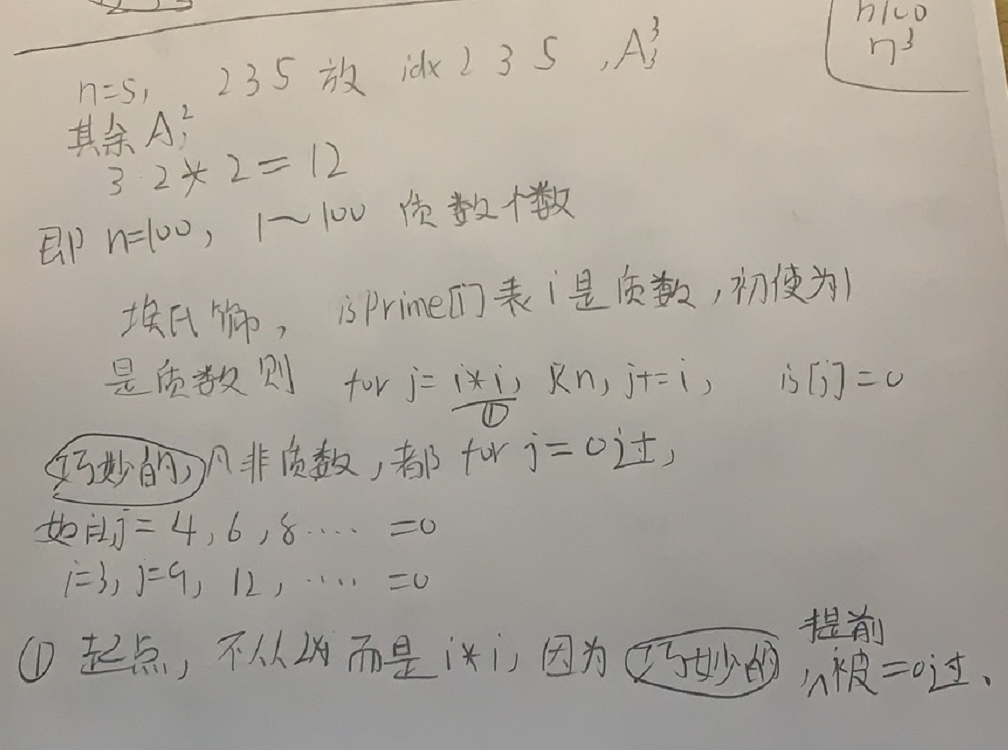 n100
n³
n=5, 2 3 5 放 idx 2 3 5 , A₃³
其余 A₂²
3·2*2=12
即 n=100, 1~100 质数个数
埃氏筛, isPrime[i] 表 i 是质数, 初使为1
是质数则 for j=i*i, j<n, j+=i, is[j]=0
①
巧妙的, 凡非质数, 都 for j=0过,
如 i=2, j=4, 6, 8.... =0
i=3, j=9, 12, .... =0
提前
① 起点, 不从 而是 i*i, 因为 巧妙的, 被=0过、